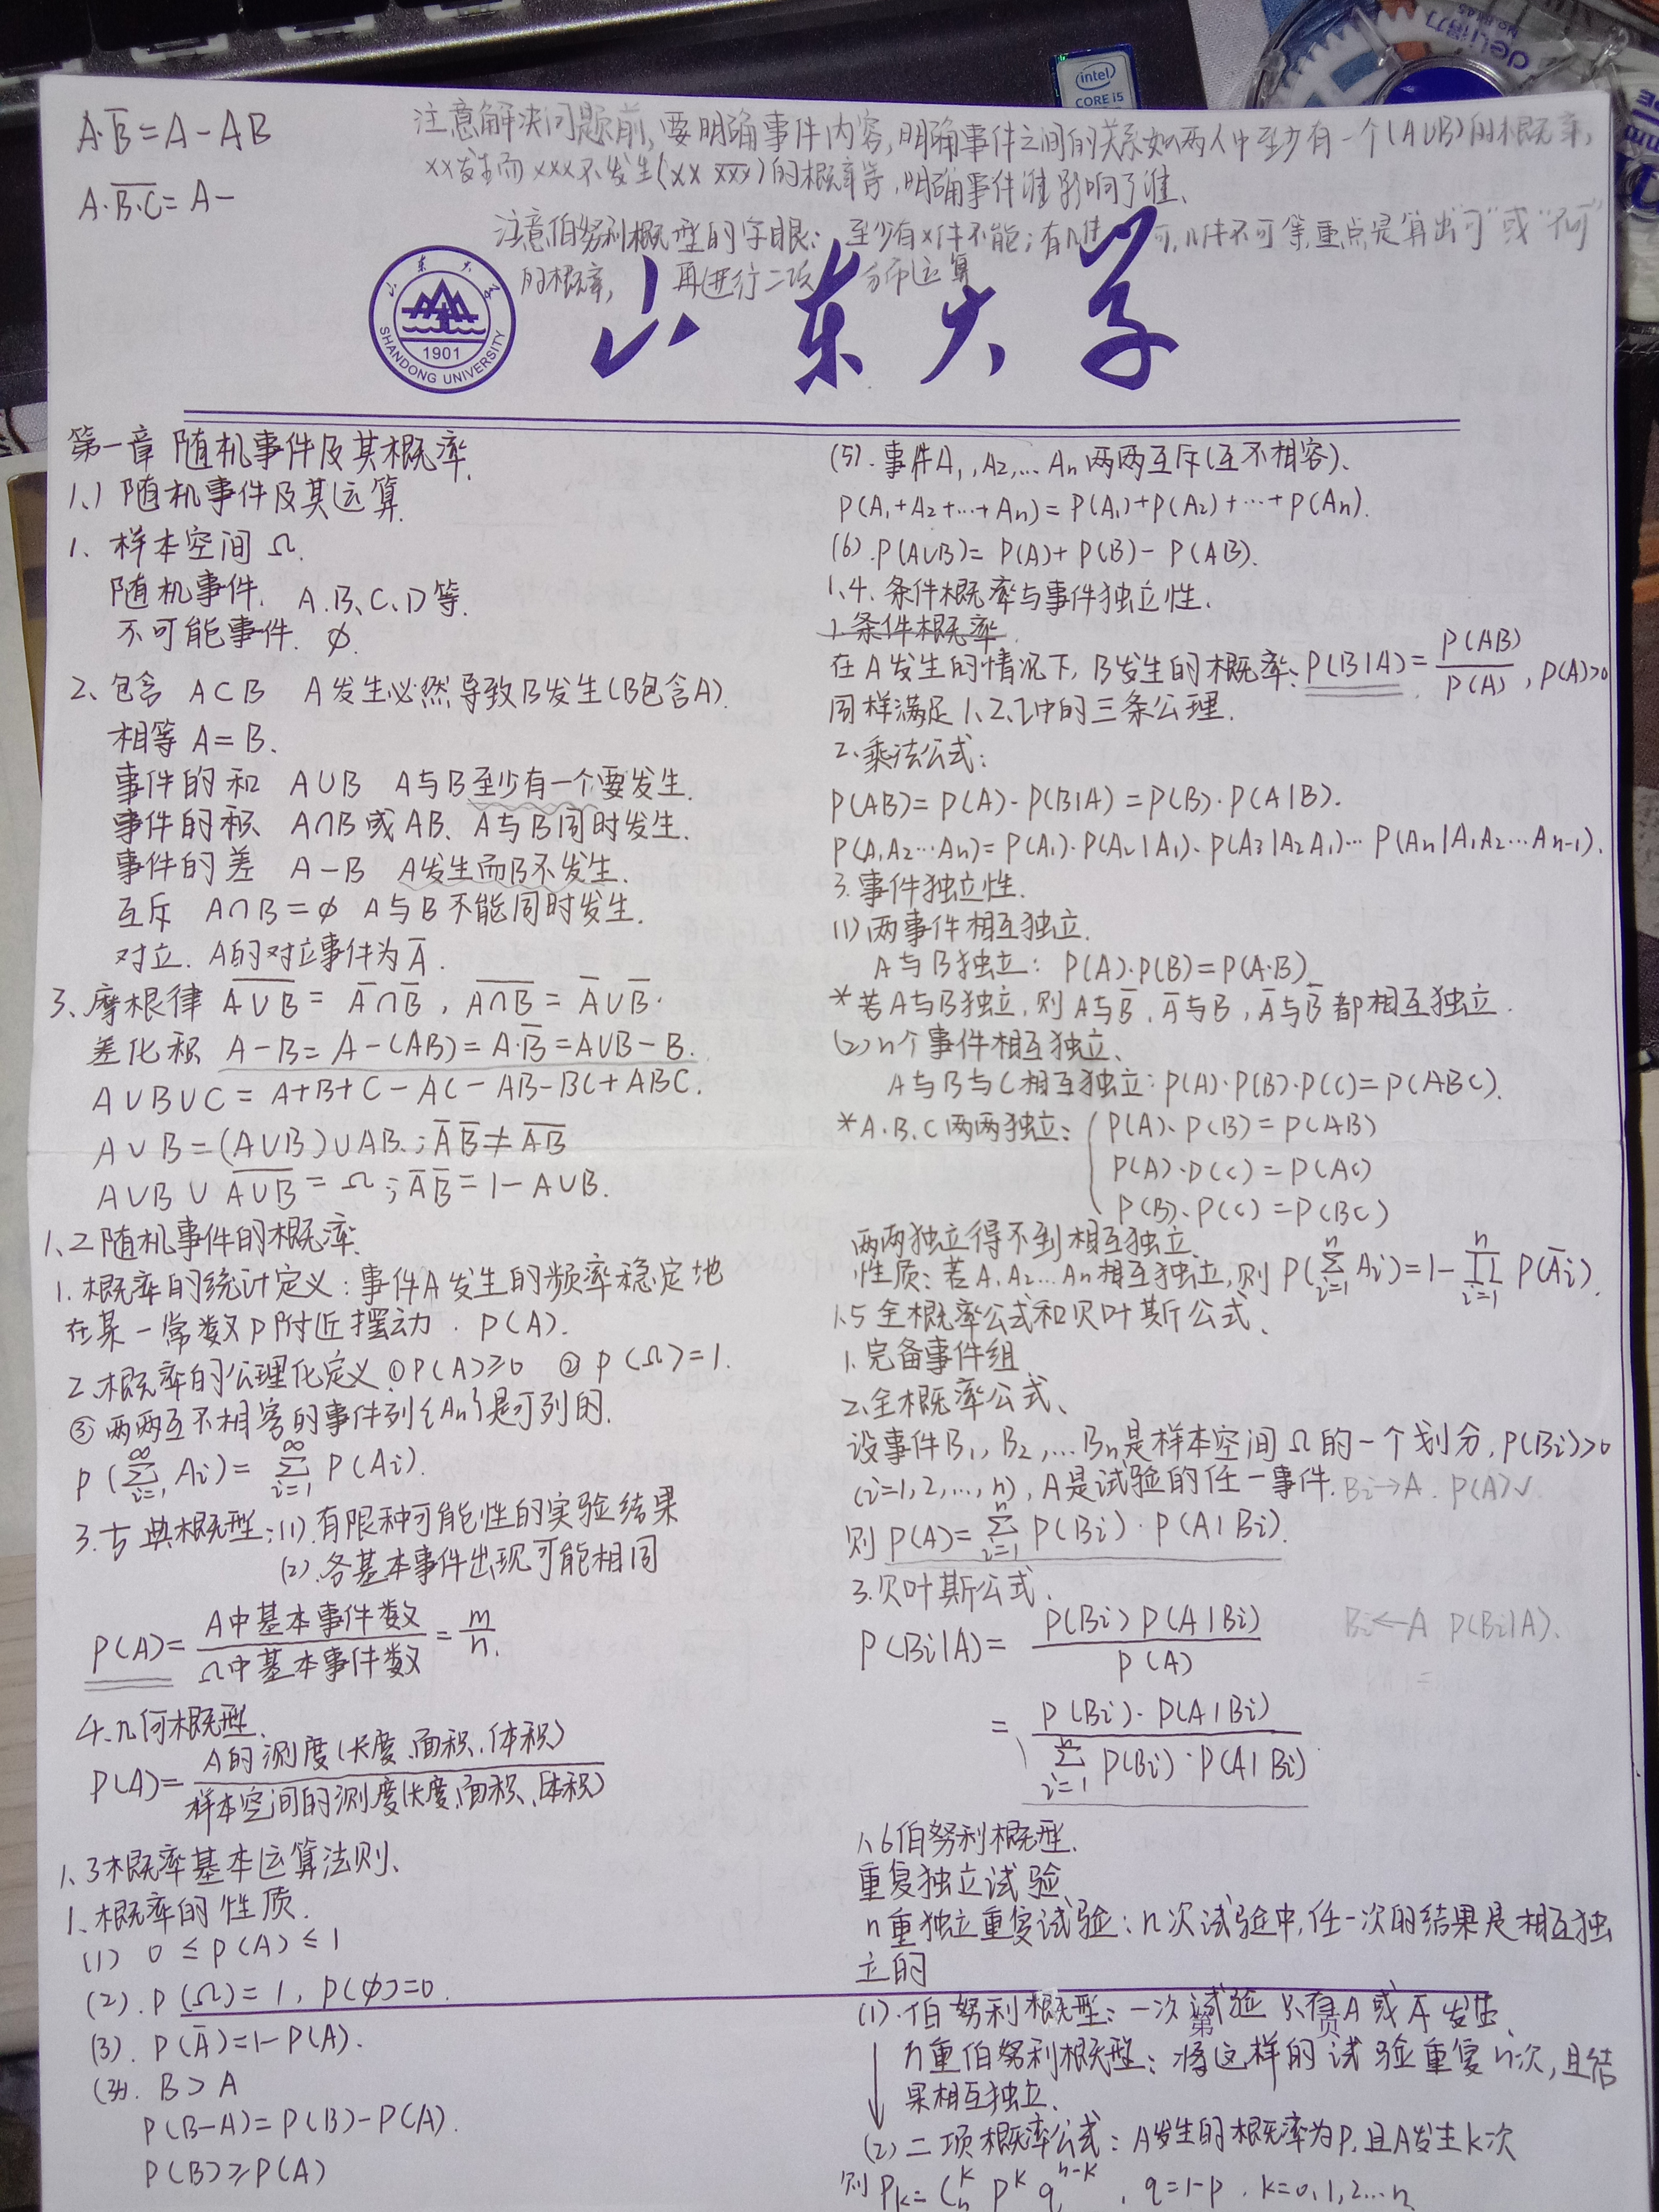 A·B̅=A-AB
A·B̅·C̅=A-
注意解决问题前,要明确事件内容,明确事件之间的关系如两人中至少有一个(A∪B)的概率,
××发生而×××不发生(×× ×××)的概率等,明确事件谁影响了谁、
注意伯努利概型的字眼:至少有×件不能;有几件 可,几件不可等,重点是算出"可"或"不可"
的概率, 再进行二项 分布运算
山东大学
SHANDONG UNIVERSITY
1901
intel
CORE i5
deli得力
第一章 随机事件及其概率.
1.1 随机事件及其运算.
1、样本空间 Ω.
随机事件. A.B、C、D等.
不可能事件. ∅.
2、包含 A⊂B A发生必然导致B发生(B包含A).
相等 A=B、
事件的和 A∪B A与B至少有一个要发生.
事件的积 A∩B或AB、A与B同时发生.
事件的差 A-B A发生而B不发生.
互斥 A∩B=∅ A与B不能同时发生.
对立. A的对立事件为A̅.
3、摩根律 \overline{A∪B}=A̅∩B̅, \overline{A∩B}=A̅∪B̅.
差化积 A-B=A-(AB)=A·B̅=A∪B-B.
A∪B∪C=A+B+C-AC-AB-BC+ABC.
A∪B=(A∪B)∪AB.;A̅B̅≠\overline{AB}
A∪B∪\overline{A∪B}=Ω;A̅B̅=1-A∪B.
1、2随机事件的概率.
1.概率的统计定义:事件A发生的频率稳定地
在某一常数P附近摆动. P(A).
2、概率的公理化定义①P(A)≥0 ②P(Ω)=1.
③两两互不相容的事件列{An}是可列的.
P(∑_{i=1}^{∞}Ai)=∑_{i=1}^{∞}P(Ai).
3.古典概型:(1).有限种可能性的实验结果
(2).各基本事件出现可能相同
P(A)=A中基本事件数/Ω中基本事件数=m/n.
4.几何概型.
P(A)=A的测度(长度、面积、体积)/样本空间的测度(长度、面积、体积)
1、3概率基本运算法则、
1、概率的性质.
(1) 0≤P(A)≤1
(2).P(Ω)=1, P(∅)=0.
(3). P(A̅)=1-P(A).
(4). B⊃A
P(B-A)=P(B)-P(A).
P(B)≥P(A)
(5).事件A₁,A₂,…An两两互斥(互不相容)、
P(A₁+A₂+…+An)=P(A₁)+P(A₂)+…+P(An).
(6).P(A∪B)=P(A)+P(B)-P(AB).
1.4.条件概率与事件独立性.
1.条件概率.
在A发生的情况下,B发生的概率:P(B|A)=P(AB)/P(A), P(A)>0
同样满足1、2、2中的三条公理.
2、乘法公式:
P(AB)=P(A)·P(B|A)=P(B)·P(A|B).
P(A₁A₂…An)=P(A₁)·P(A₂|A₁)·P(A₃|A₂A₁)…P(An|A₁A₂…An-1).
3.事件独立性.
(1)两事件相互独立.
A与B独立:P(A)·P(B)=P(A·B)
*若A与B独立,则A与B̅、A̅与B,A̅与B̅都相互独立.
(2)n个事件相互独立、
A与B与C相互独立:P(A)·P(B)·P(C)=P(ABC).
*A.B.C两两独立:{P(A)·P(B)=P(AB)
P(A)·P(C)=P(AC)
P(B)·P(C)=P(BC)
两两独立得不到相互独立.
性质:若A₁A₂…An相互独立,则P(∑_{i=1}^{n}Ai)=1-∏_{i=1}^{n}P(A̅i).
1.5全概率公式和贝叶斯公式、
1.完备事件组
2.全概率公式、
设事件B₁,B₂,…Bn是样本空间Ω的一个划分,P(Bi)>0
(i=1,2,…,n),A是试验的任一事件. Bi→A. P(A)√.
则P(A)=∑_{i=1}^{n}P(Bi)·P(A|Bi).
3.贝叶斯公式.
P(Bi|A)=P(Bi)P(A|Bi)/P(A) Bi←A P(Bi|A).
=P(Bi)·P(A|Bi)/∑_{i=1}^{n}P(Bi)·P(A|Bi)
1、6伯努利概型.
重复独立试验
n重独立重复试验:n次试验中,任一次的结果是相互独
立的
(1).伯努利概型:一次试验只有A或A̅发生、
第 页
n重伯努利概型:将这样的试验重复n次,且结
果相互独立.
(2)二项概率公式:A发生的概率为P,且A发生k次
则Pk=C_n^k P^k q^{n-k}, q=1-p, k=0,1,2…n